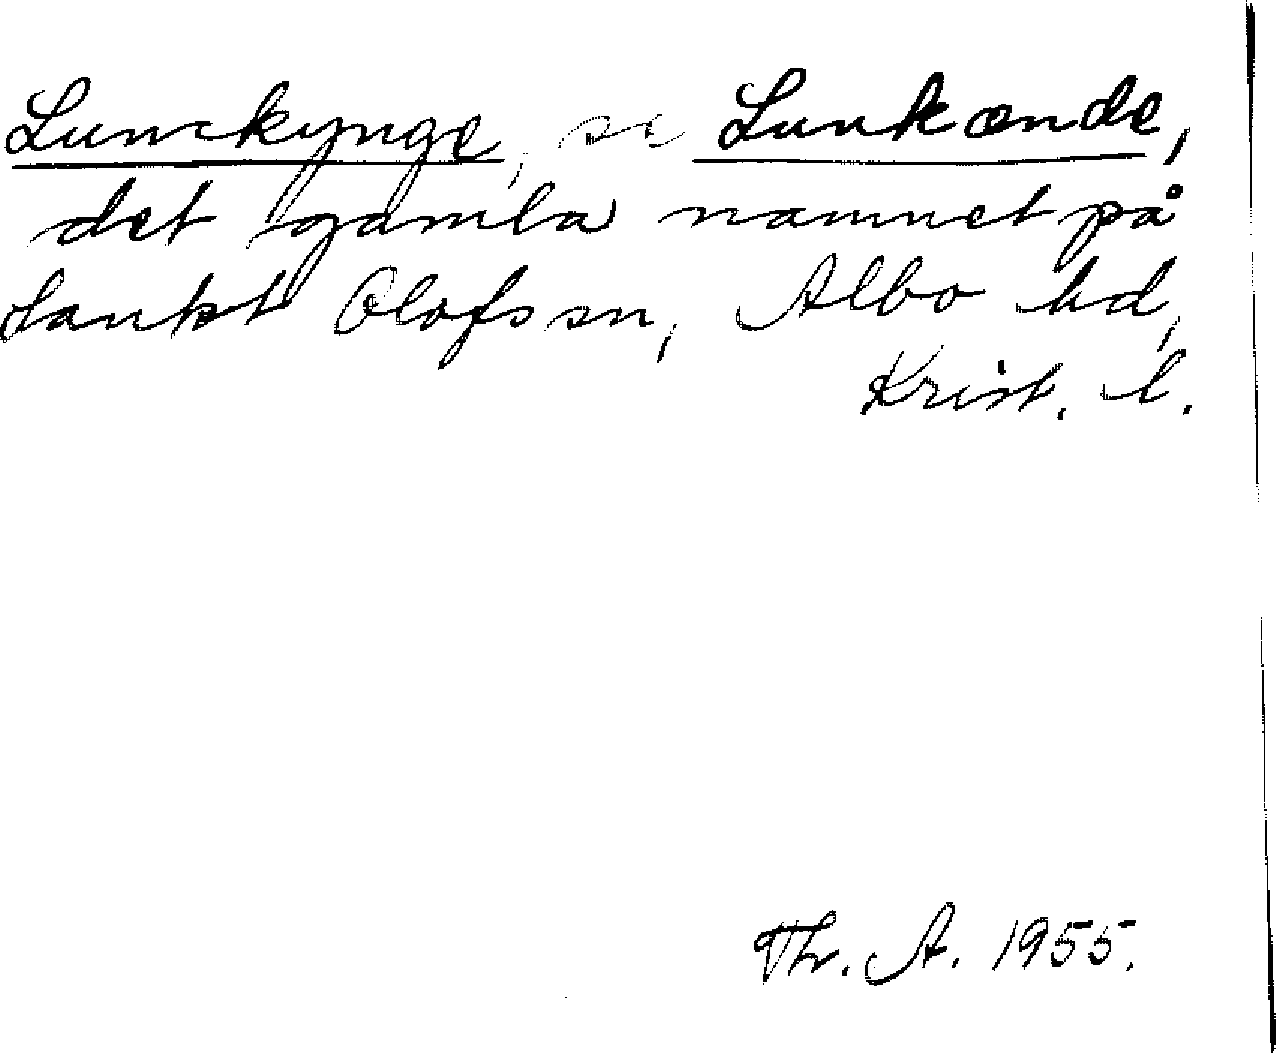 Lunckynge, se Lunkænde,
det gamla namnet på
Sankt Olofs sn, Albo hd,
Krist. l.
Th. A. 1955.